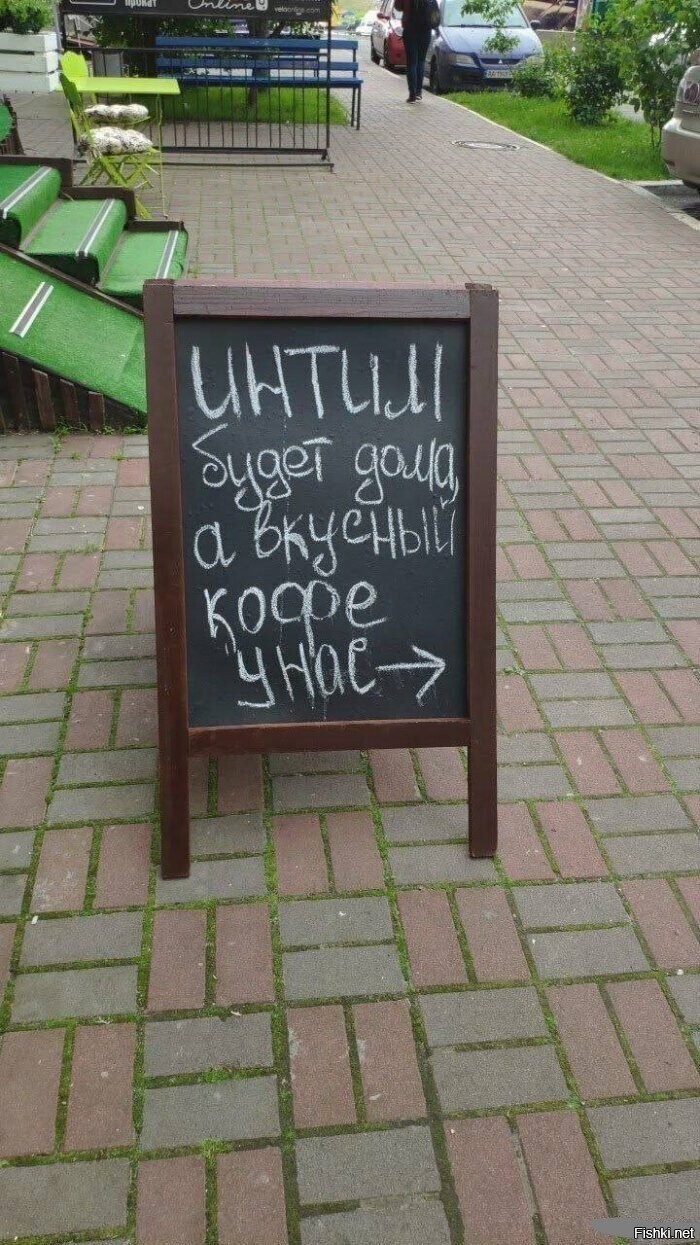 прокат Online
ИНТИМ
будет дома,
а вкусный
кофе
у нас →
Fishki.net